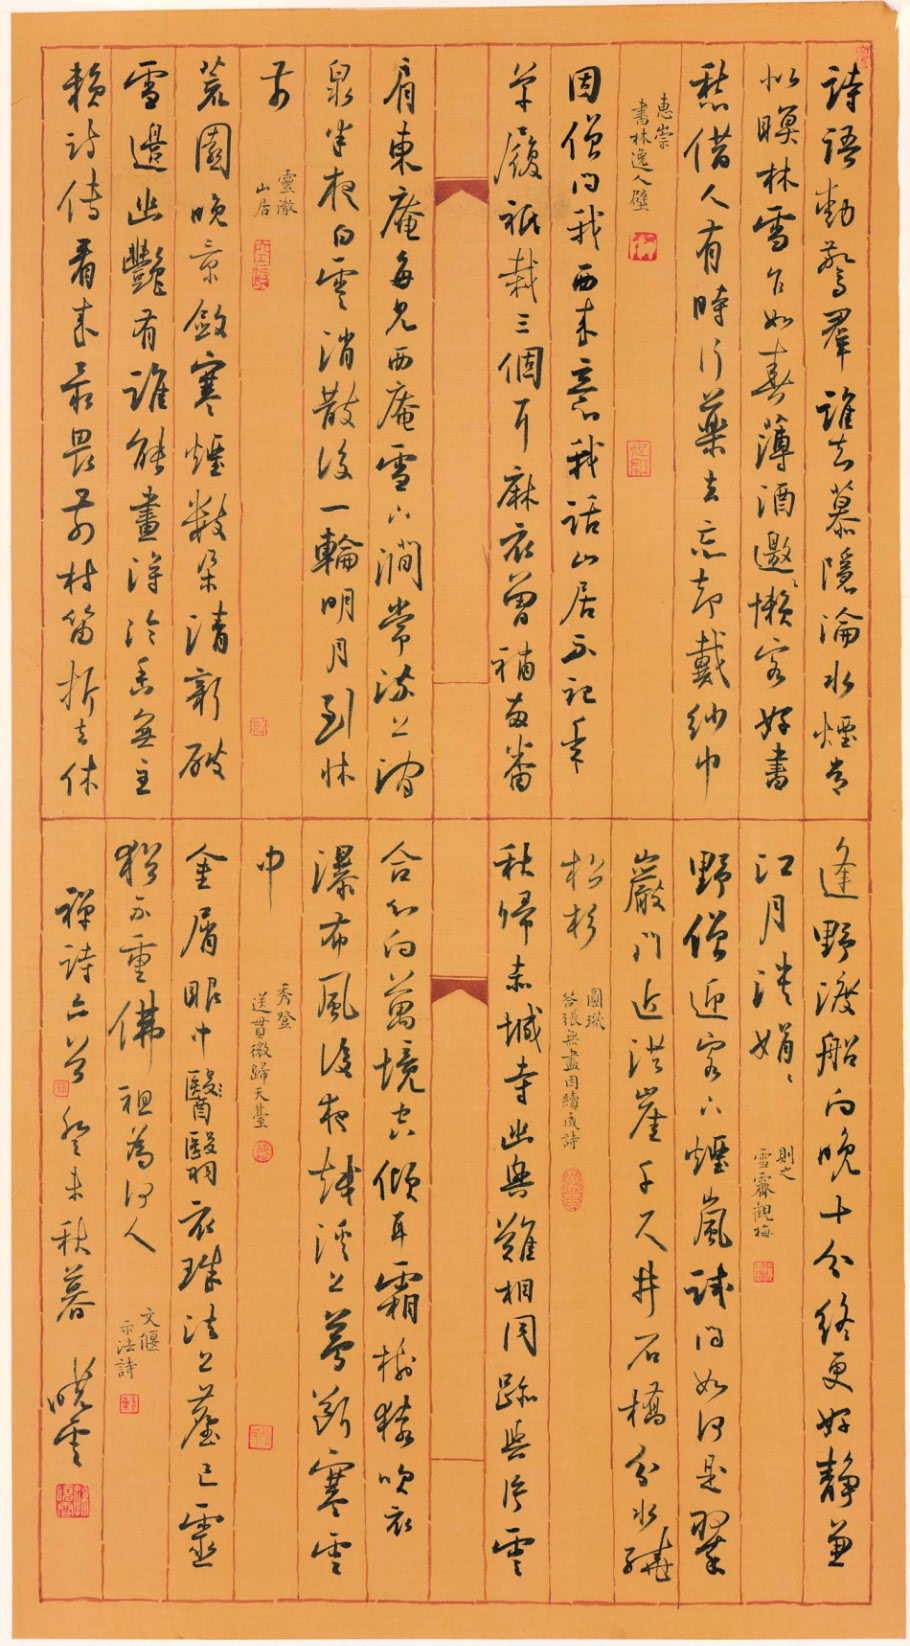 詩語動驚羣誰云慕隱淪水煙常
似暝林雪乍如春薄酒邀懶客好書
愁借人有時行藥去忘却戴紗巾
惠崇
書林逸人壁
因僧問我西來意我話山居不記年
草履祇裁三個耳麻衣曾補兩番
肩東庵每見西庵雪下澗常流上澗
泉半夜白雲消散後一輪明月到牀
前
靈澈
山居
荒園晚景斂寒煙數朵清新破
雪邊幽豔有誰能畫得冷香無主
賴詩傳看來最畏前村笛折去休
逢野渡船向晚十分終更好靜兼
江月淡娟〻
則之
雪霽觀梅
野僧迎客下煙嵐試問如何是翠
巖門近洪崖千尺井石橋分水繞
松杉
圓璣
答張無盡因續成詩
秋歸赤城寺幽興難相同跡與片雲
合心向萬境空傾耳霜樹猿吹衣
瀑布風後夜越溪上夢斷寒雲
中
秀登
送貫微歸天臺
金屑眼中醫翳衣珠法上塵己靈
猶不重佛祖為何人
文偃
示法詩
禪詩六首癸未秋暮
曉雲